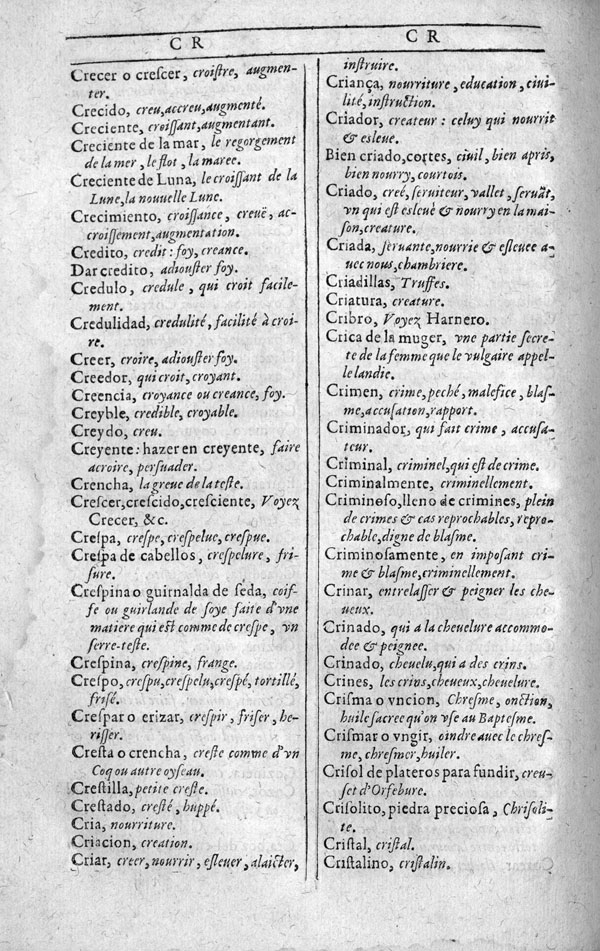 CR
Crecer o crescer, croiſtre, augmen-
ter.
Crecido, creu, accreu, augmenté.
Creciente, croiſſant, augmentant.
Creciente de la mar, le regorgement
de la mer, le flot, la maree.
Creciente de Luna, le croiſſant de la
Lune, la nouuelle Lune.
Crecimiento, croiſſance, creuë, ac-
croiſſement, augmentation.
Credito, credit : foy, creance.
Dar credito, adiouſter foy.
Credulo, credule, qui croit facile-
ment.
Credulidad, credulité, facilité à croi-
re.
Creer, croire, adiouſter foy.
Creedor, qui croit, croyant.
Creencia, croyance ou creance, foy.
Creyble, credible, croyable.
Creydo, creu.
Creyente : hazer en creyente, faire
acroire, perſuader.
Crencha, la greue de la teſte.
Creſcer, creſcido, creſciente, Voyez
Crecer, &c.
Creſpa, creſpe, creſpelue, creſpue.
Creſpa de cabellos, creſpelure, fri-
ſure.
Creſpina o guirnalda de ſeda, coif-
fe ou guirlande de ſoye faite d'vne
matiere qui est comme de creſpe, vn
ſerre-teſte.
Creſpina, creſpine, frange.
Creſpo, creſpu, creſpelu, creſpé, tortillé,
friſé.
Creſpar o erizar, creſpir, friſer, he-
riſſer.
Creſta o crencha, creſte comme d'vn
Coq ou autre oyſeau.
Creſtilla, petite creſte.
Creſtado, creſté, huppé.
Cria, nourriture.
Criacion, creation.
Criar, creer, nourrir, eſleuer, alaicter,
CR
inſtruire.
Criança, nourriture, education, ciui-
lité, inſtruction.
Criador, createur : celuy qui nourrit
& esleue.
Bien criado, cortes, ciuil, bien apris,
bien nourry, courtois.
Criado, creé, ſeruiteur, vallet, ſeruãt,
vn qui est esleué & nourry en la mai-
ſon, creature.
Criada, ſeruante, nourrie & esleuee a-
uec nous, chambriere.
Criadillas, Truffes.
Criatura, creature.
Cribro, Voyez Harnero.
Crica de la muger, vne partie ſecre-
te de la femme que le vulgaire appel-
le landie.
Crimen, crime, peché, malefice, blaſ-
me, accuſation, rapport.
Criminador, qui fait crime, accuſa-
teur.
Criminal, criminel, qui est de crime.
Criminalmente, criminellement.
Criminoſo, lleno de crimines, plein
de crimes & cas reprochables, repro-
chable, digne de blaſme.
Criminoſamente, en impoſant cri-
me & blaſme, criminellement.
Crinar, entrelaſſer & peigner les che-
ueux.
Crinado, qui a la cheuelure accommo-
dee & peignee.
Crinado, cheuelu, qui a des crins.
Crines, les crins, cheueux, cheuelure.
Criſma o vncion, Chreſme, onction,
huile ſacree qu'on vſe au Bapteſme.
Criſmar o vngir, oindre auec le chreſ-
me, chreſmer, huiler.
Criſol de plateros para fundir, creu-
ſet d'Orfebure.
Criſolito, piedra precioſa, Chriſoli-
te.
Criſtal, criſtal.
Criſtalino, criſtalin.